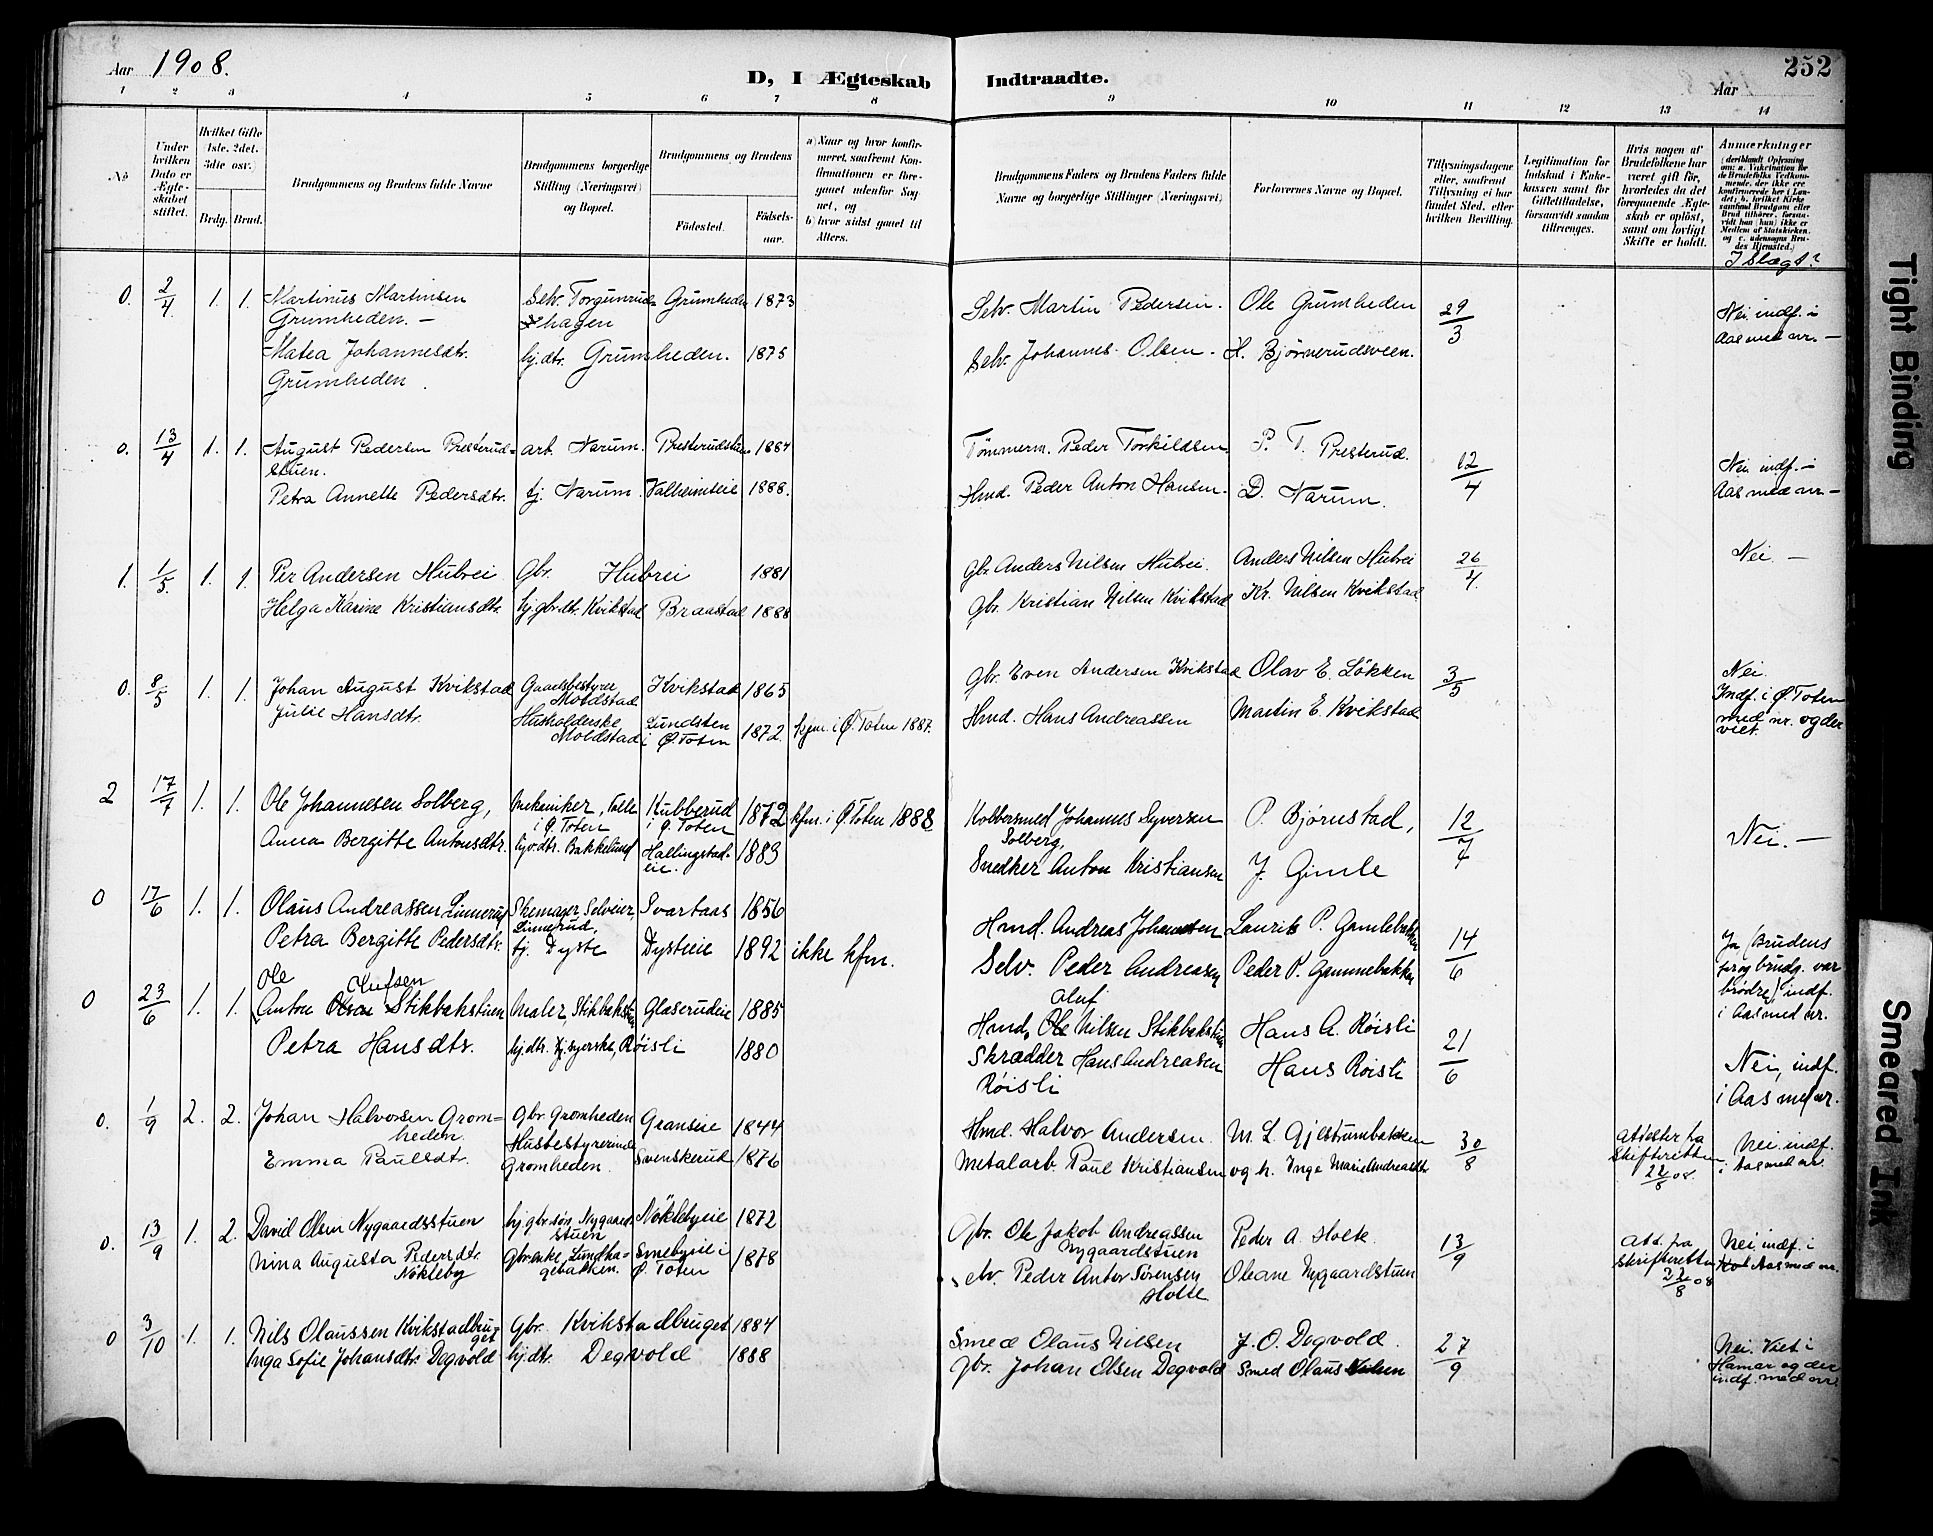 Aar 1908.
D, I Ægteskab Indtraadte.
Aar
252
1 2 3 4 5 6 7 8 9 10 11 12 13 14
No
Under hvilken Dato er Ægteskabet stiftet.
Hvilket Gifte 1ste. 2det. 3die osv.)
Brdg. Brud.
Brudgommens og Brudens fulde Navne
Brudgommens borgerlige Stilling (Næringsvei) og Bopæl.
Brudgommens og Brudens
Födested.
Födselsaar.
a) Naar og hvor konfirmeret, saafremt Konfirmationen er foregaaet udenfor Sognet, og
b) hvor sidst gaaet til Alters.
Brudgommens Faders og Brudens Faders fulde Navne og borgerlige Stillinger (Næringsvei)
Forlovernes Navne og Bopæl.
Tillysningsdagene eller, saafremt Tillysning ei har fundet Sted, efter hvilken Bevilling.
Legitimation for Indskud i Enkekassen samt for Giftetilladelse, forsaavidt saadan tiltrænges.
Hvis nogen af Brudefolkene har været gift för, hvorledes da det foregaaende Ægteskab er oplöst, samt om lovligt Skifte er holdt.
Anmærkninger
(deriblandt Oplysning om: a. Vakcination for de Brudefolks Vedkommende, der ikke ere konfirmerede her i Landet; b. hvilket Kirkesamfund Brudgom eller Brud tilhörer, forsaavidt han (hun) ikke er Medlem af Statskirken, og c. udensogns Brudes Hjemsted.)
I Slægt?
0. 2/4 1. 1. Martinus Martinsen Selv. Torgunrud= Grumheden 1873 Selv. Martin Pedersen. Ole Grumheden 29/3 Nei. indf. i
Grumheden. — hagen Aas med nr. —
Matea Johannesdtr. hj. dtr. Grumheden. 1875 Selv. Johannes Olsen. H. Bjørnerudsveen.
Grumheden.
0. 13/4 1. 1. August Pedersen Presterud= arb. Narum. Presterudstuen 1884 Tömmerm. Peder Torkildsen P. T. Presterud. 12/4 Nei. indf. i
stuen. Aas med nr. —
Petra Annette Pedersdtr. tj. Narum. Valheimseie 1888. Hmd. Peder Anton Hansen. D. Narum.
1. 1/5 1. 1. Per Andersen Hubrei Gbr. Hubrei 1881 gbr. Anders Nilsen Hubrei. Anders Nilsen Hubrei 26/4. Nei —
Helga Karine Kristiansdtr. hj. gbr. dtr. Kvikstad Braastad 1888 gbr. Kristian Nilsen Kvikstad Kr. Nilsen Kvikstad
0. 8/5 1. 1. Johan August Kvikstad Gaardsbestyrer Kvikstad 1865 gbr. Even Andersen Kvikstad Olav E. Lökken 3/5 Nei.
Moldstad Indf. i Ø. Toten
Julie Hansdtr. Husholderske Lundsten 1872 kfm. i Ø. Toten 1887. Hmd. Hans Andreassen Martin E. Kvikstad med nr. og der
Moldstad i Ø. Toten viet.
2 17/7 1. 1. Ole Johannesen Solberg, Mekaniker, Kubberud 1872 kfm. i Ø. Toten 1888 Johannes Syversen P. Bjørnstad, 12/7 Nei. —
i Ø. Toten i Ø. Toten Solberg,
Anna Bergitte Antonsdtr. Bakkelund Hallingstad- 1883 Snedker Anton Kristiansen J. Gimle
eie.
0 17/6 1. 1. Olaus Andreassen Linnerud Skomager, Selveier, Svartaas 1856 Hmd. Andreas Johannesen Laurits P. Gamlebakken 14/6 Ja (Brudens
Linnerud, prog brudg. var
Petra Bergitte Pedersdtr. tj. Dyste Dysteeie 1892 ikke kfm. Selv. Peder Andreasen Peder K. Gammebakken brødre) indf.
i Aas med nr.
0 23/6 1. 1. Ole Anton Olsen Olufsen Stikbakstuen Maler, Stikbakstuen Glaserudeie 1885 Hmd. Ole Oluf Nilsen Stikbakstuen Hans A. Røisli 21/6 Nei, indf.
Petra Hansdtr. hj. dtr. syerske, Røisli 1880 Skrædder Hans Andreasen Hans Røisli i Aas med nr.
Røisli
0. 1/9 2. 2. Johan Halvorsen Grom= Gbr. Gromheden Granseie 1844 Hmd. Halvor Andersen. M. L. Gjestrumbakken 30/8 Attester fra Nei indf.
heden. Husbestyrerinde skifteretten i Aas med nr.
Emma Paulsdtr. Gromheden. Svenskerud 1876 Metalarb. Paul Kristiansen og h. Inga Marie Andreasdtr 22/8 08.
0. 13/9 1. 2. David Olsen Nygaardsstuen hj. gbr. søn Nygaards- Nöklebyeie 1872 Gbr. Ole Jakob Andreassen Peder A. Holte 13/9 Att. fra Nei. indf. i
stuen Nygaardstuen skifteretten Aas med nr.
Nina Augusta Pedersdtr. Gbr. enke, Lundha= Smebyeie i 1878 Selv. Peder Anton Sørensen Oleane Nygaardstuen 22/8 08
Nökleby gebakken. Ø. Toten Holte
0 3/10 1. 1. Nils Olaussen Kvikstadbru= Gbr. Kvikstadbruget 1884 Smed Olaus Nilsen J. O. Degvold. 27/9 Nei. Viet i
get Hamar og der
Inga Sofie Johansdtr. Degvold hj. dtr. Degvold 1888 Gbr. Johan Olsen Degvold Smed Olaus Nilsen indf. med nr.
Tight Binding
Smeared Ink